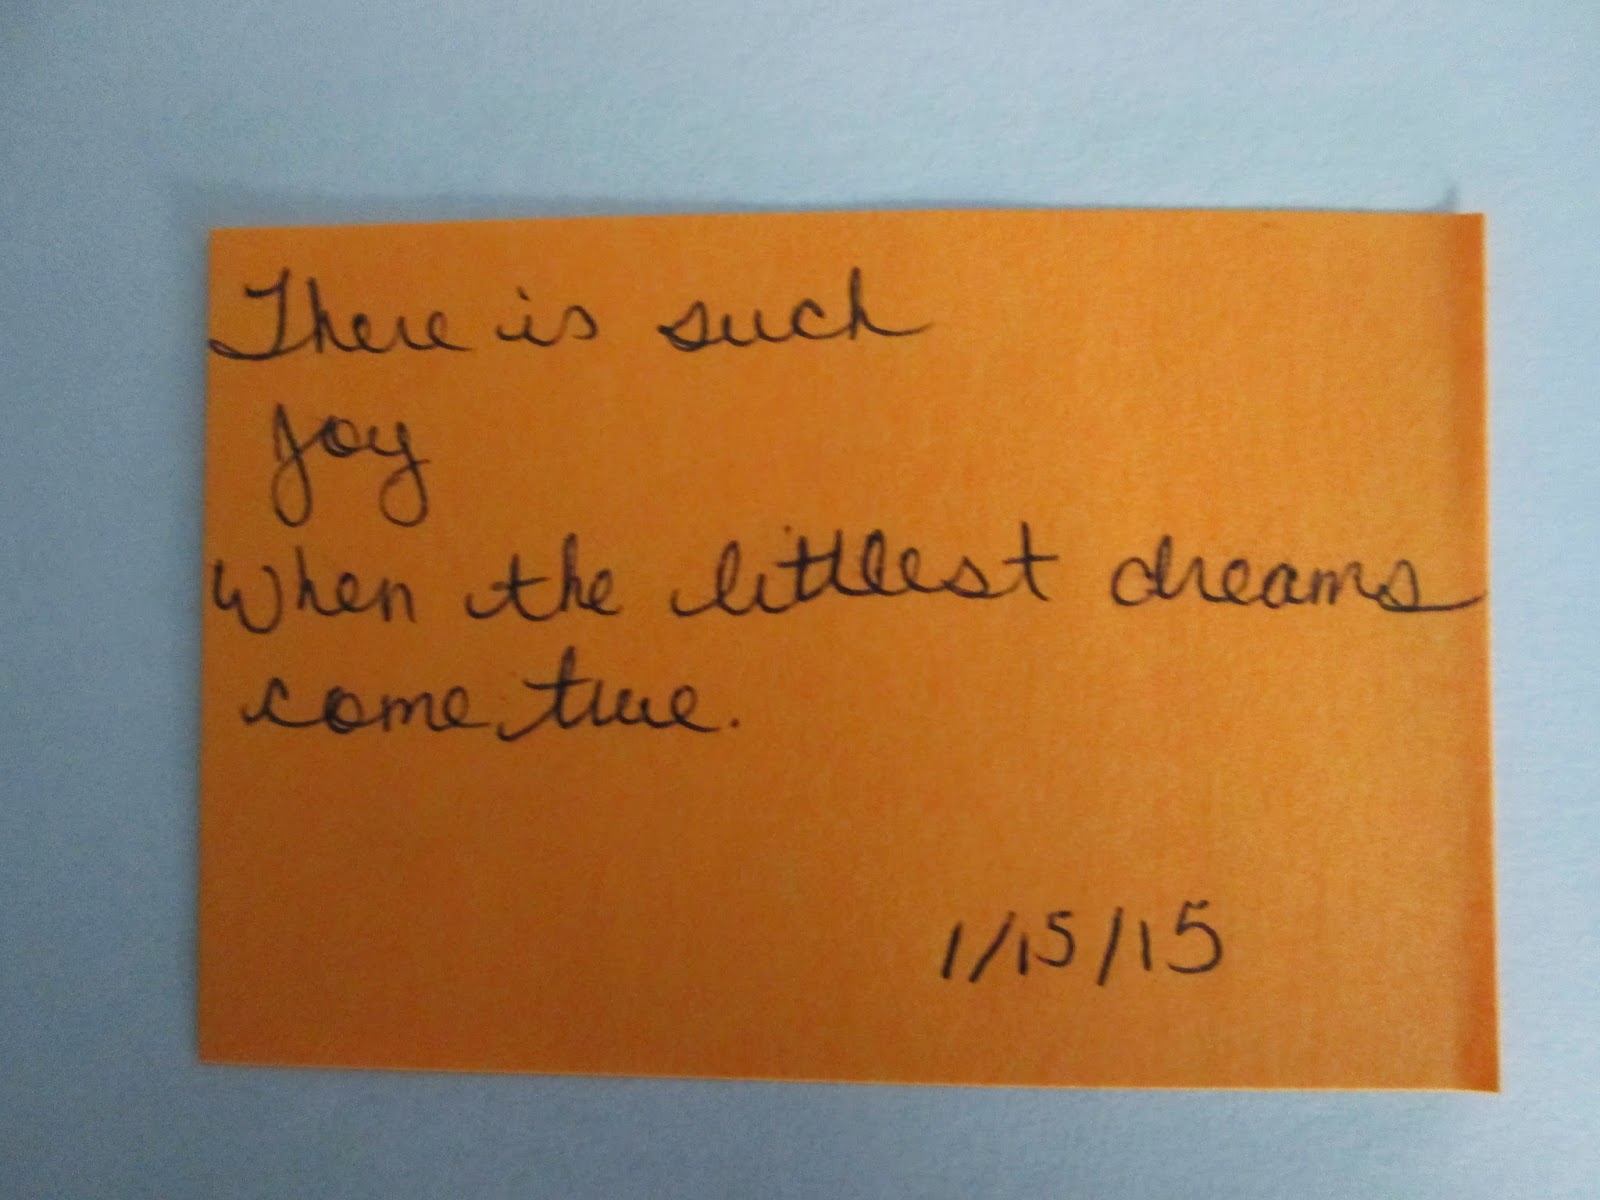 There is such
joy
When the littlest dreams
come true.
1/15/15